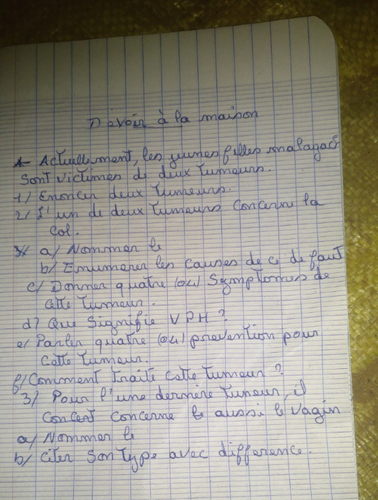 Devoir à la maison
A- Actuellement, les jeunes filles malagach
sont victimes de deux tumeurs.
1/ Enoncer deux tumeurs.
2/ L'un de deux tumeurs concerne la
Col.
a/ Nommer le
b/ Enumerer les causes de ce de faut
c/ Donner quatre (04) Symptomes de
cette tumeur.
d/ Que Signifie VPH ?
e/ Parler quatre (04) prevention pour
cette tumeur.
f/ Comment traite cette tumeur ?
3/ Pour l'une derniere tumeur, il
concent concerne le aussi le vagin
a/ Nommer le
b/ Citer son type avec difference.